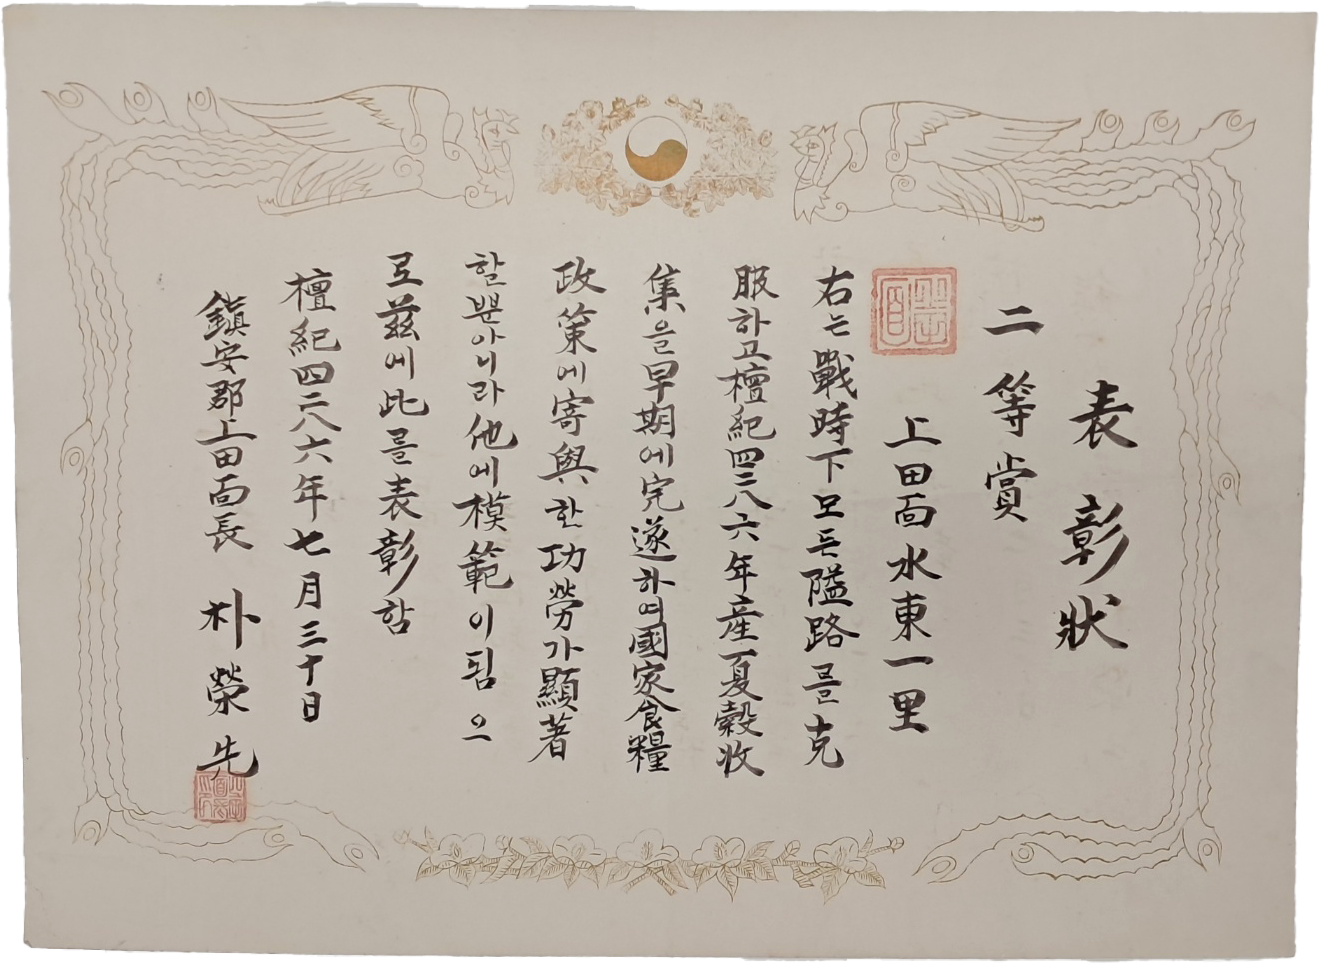 表彰狀
二等賞
上田面水東一里
右는戰時下모든隘路를克
服하고檀紀四二八六年産夏穀收
集을早期에完遂하여國家食糧
政策에寄與한功勞가顯著
할뿐아니라他에模範이됨으
로玆에此를表彰함
檀紀四二八六年七月三十日
鎭安郡上田面長 朴榮先